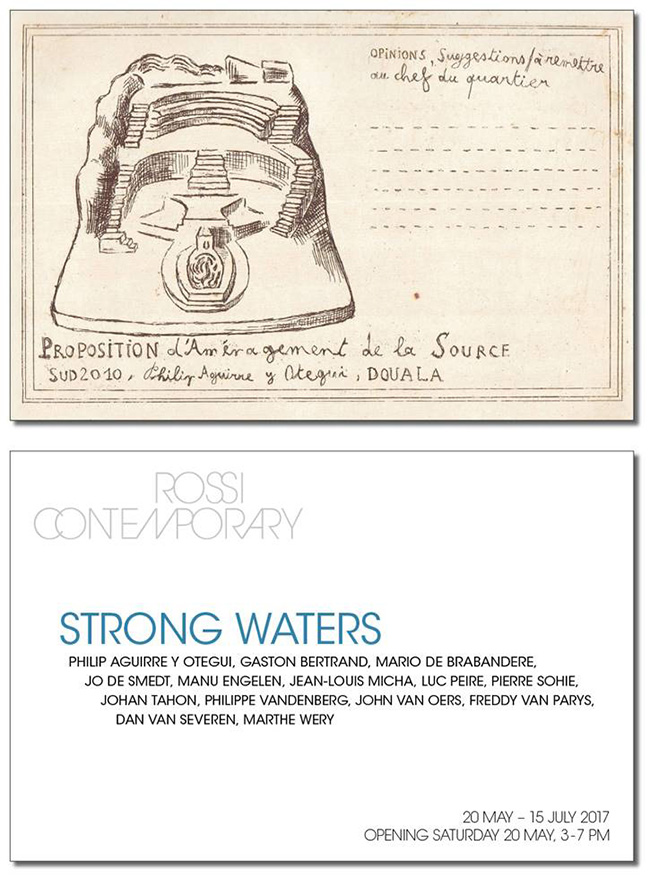 OPINIONS, Suggestions/à remettre
au chef du quartier
PROPOSITION d'Aménagement de la SOURCE
SUD2010, Philip Aguirre y Otegui, DOUALA
ROSSI
CONTEMPORARY
STRONG WATERS
PHILIP AGUIRRE Y OTEGUI, GASTON BERTRAND, MARIO DE BRABANDERE,
JO DE SMEDT, MANU ENGELEN, JEAN-LOUIS MICHA, LUC PEIRE, PIERRE SOHIE,
JOHAN TAHON, PHILIPPE VANDENBERG, JOHN VAN OERS, FREDDY VAN PARYS,
DAN VAN SEVEREN, MARTHE WERY
20 MAY – 15 JULY 2017
OPENING SATURDAY 20 MAY, 3-7 PM